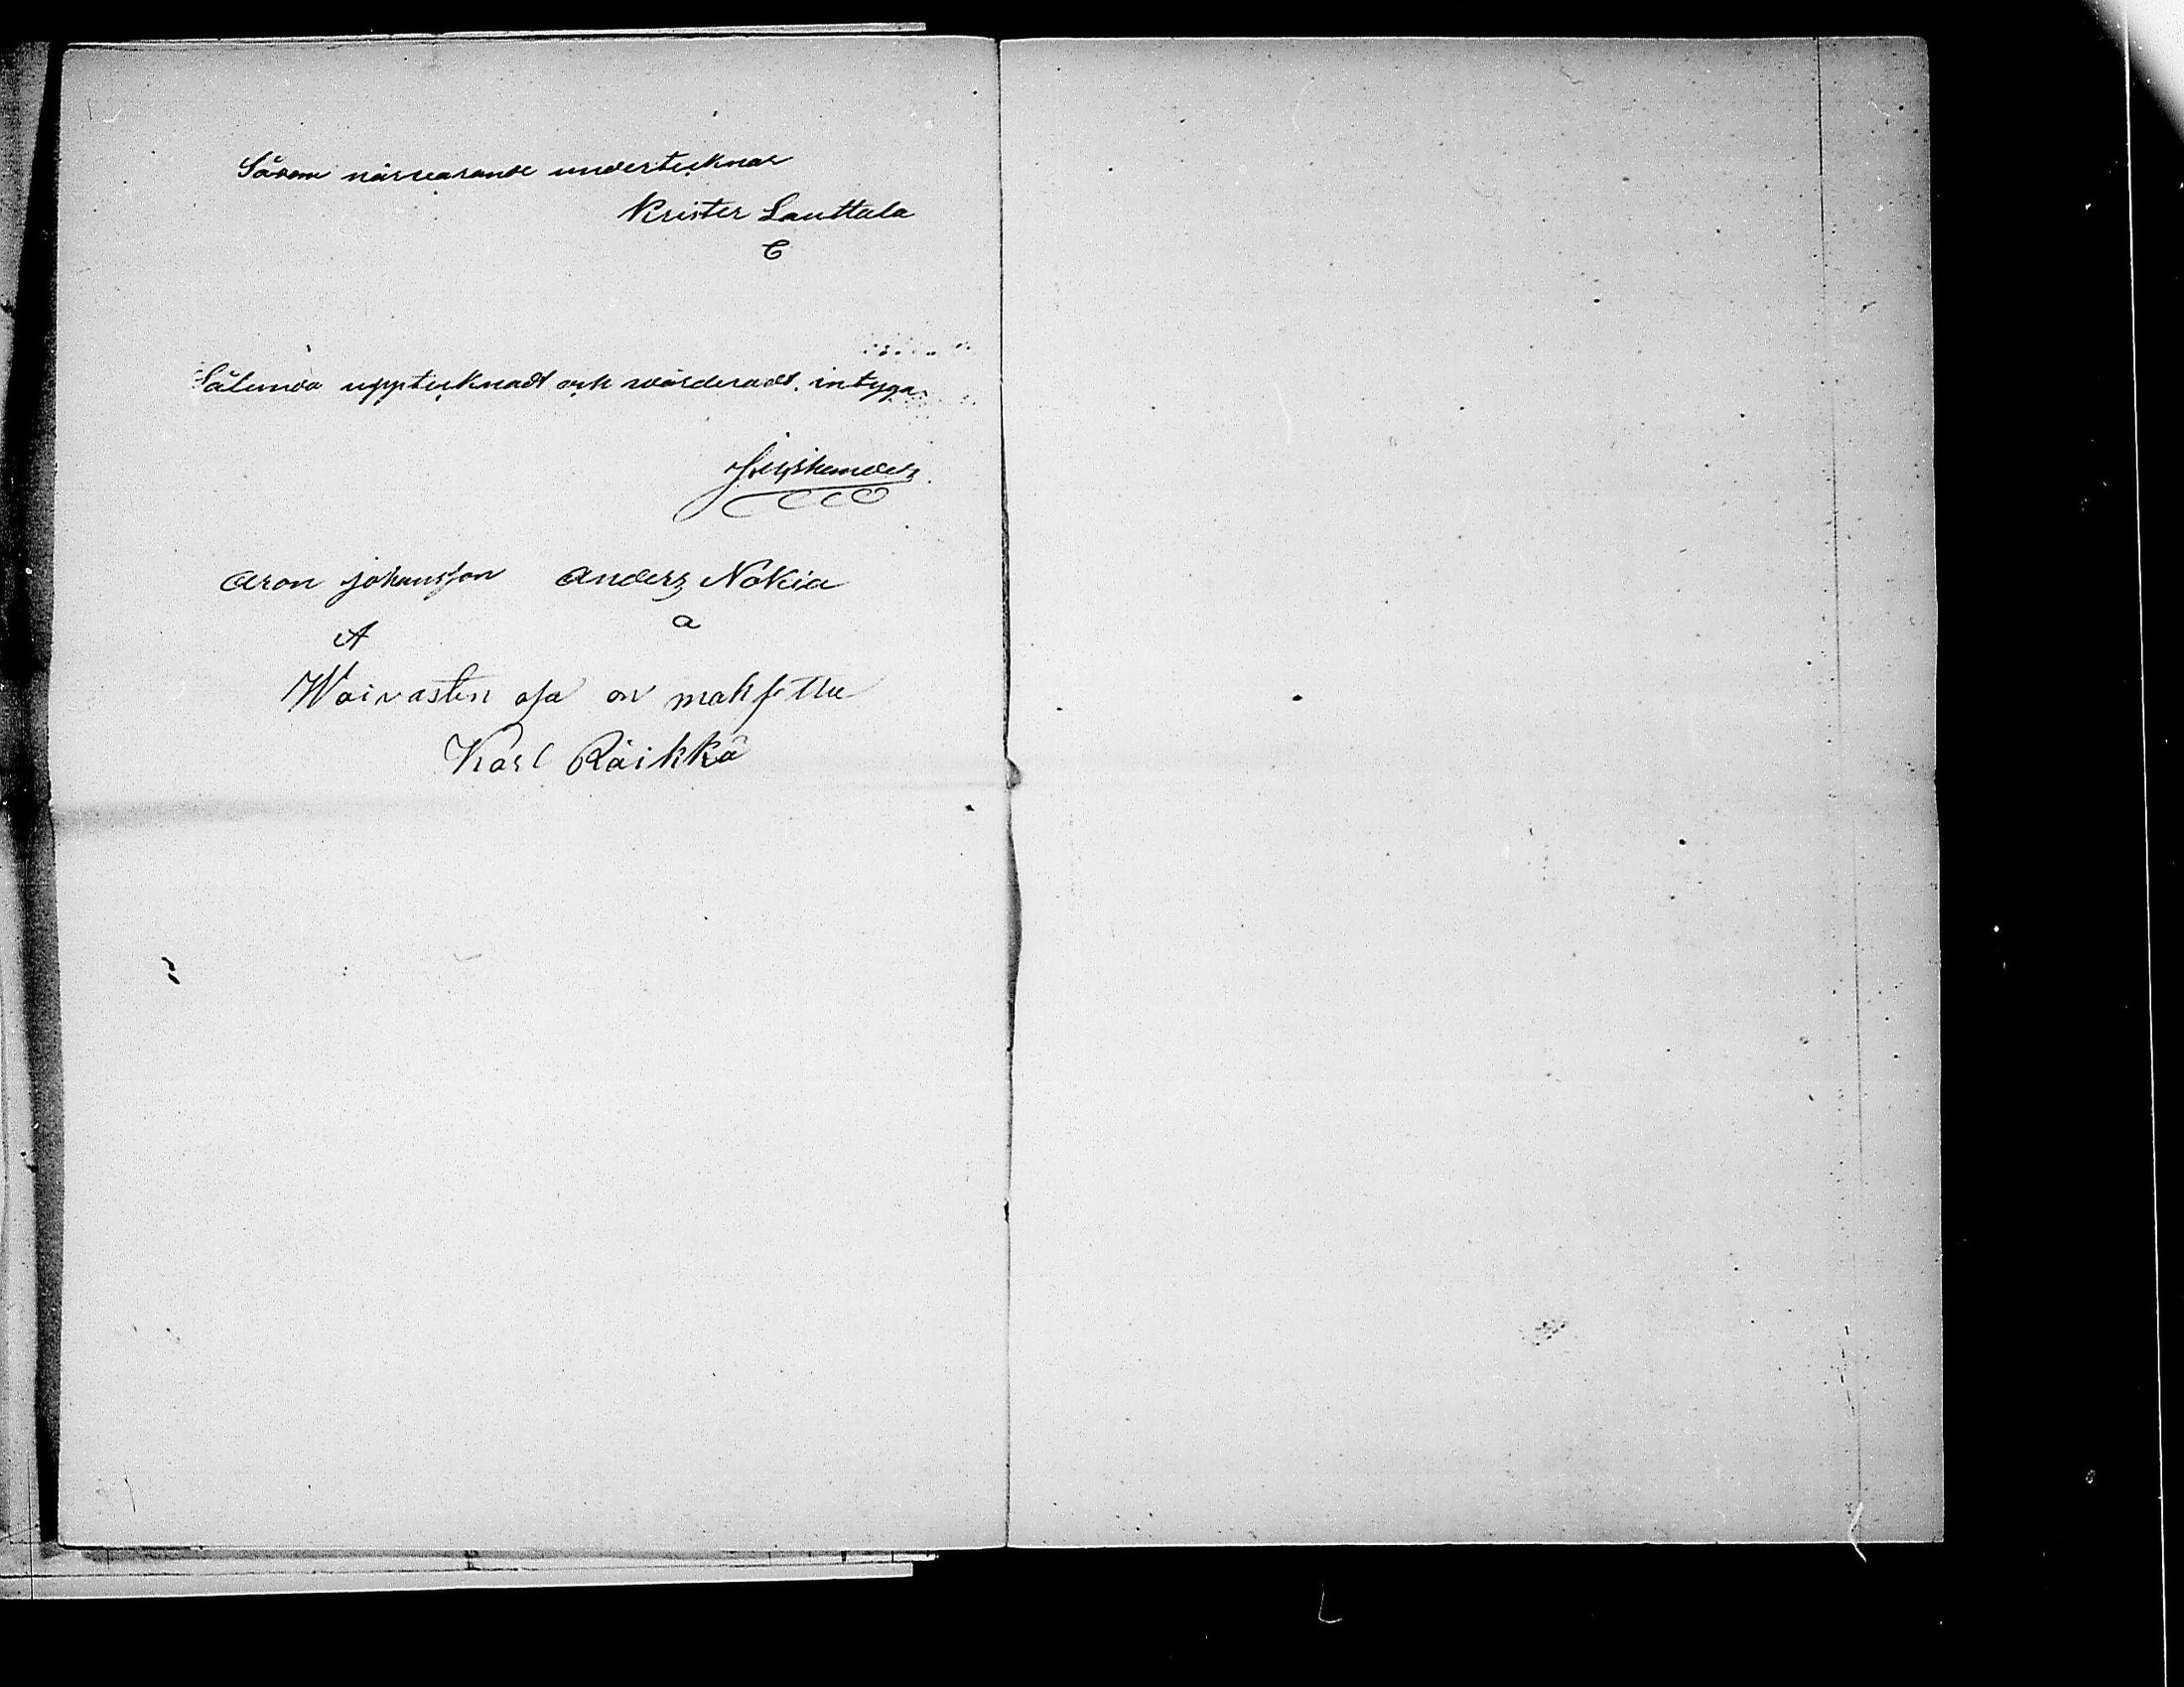 Såsom närvarande undertecknar
Krister Lauttala
C
Sålunda upptecknadt och värderadt, intyga
Aron Johansson Anders Nokia
A a
Waivasten osa on maksettu
Karl Räikkä